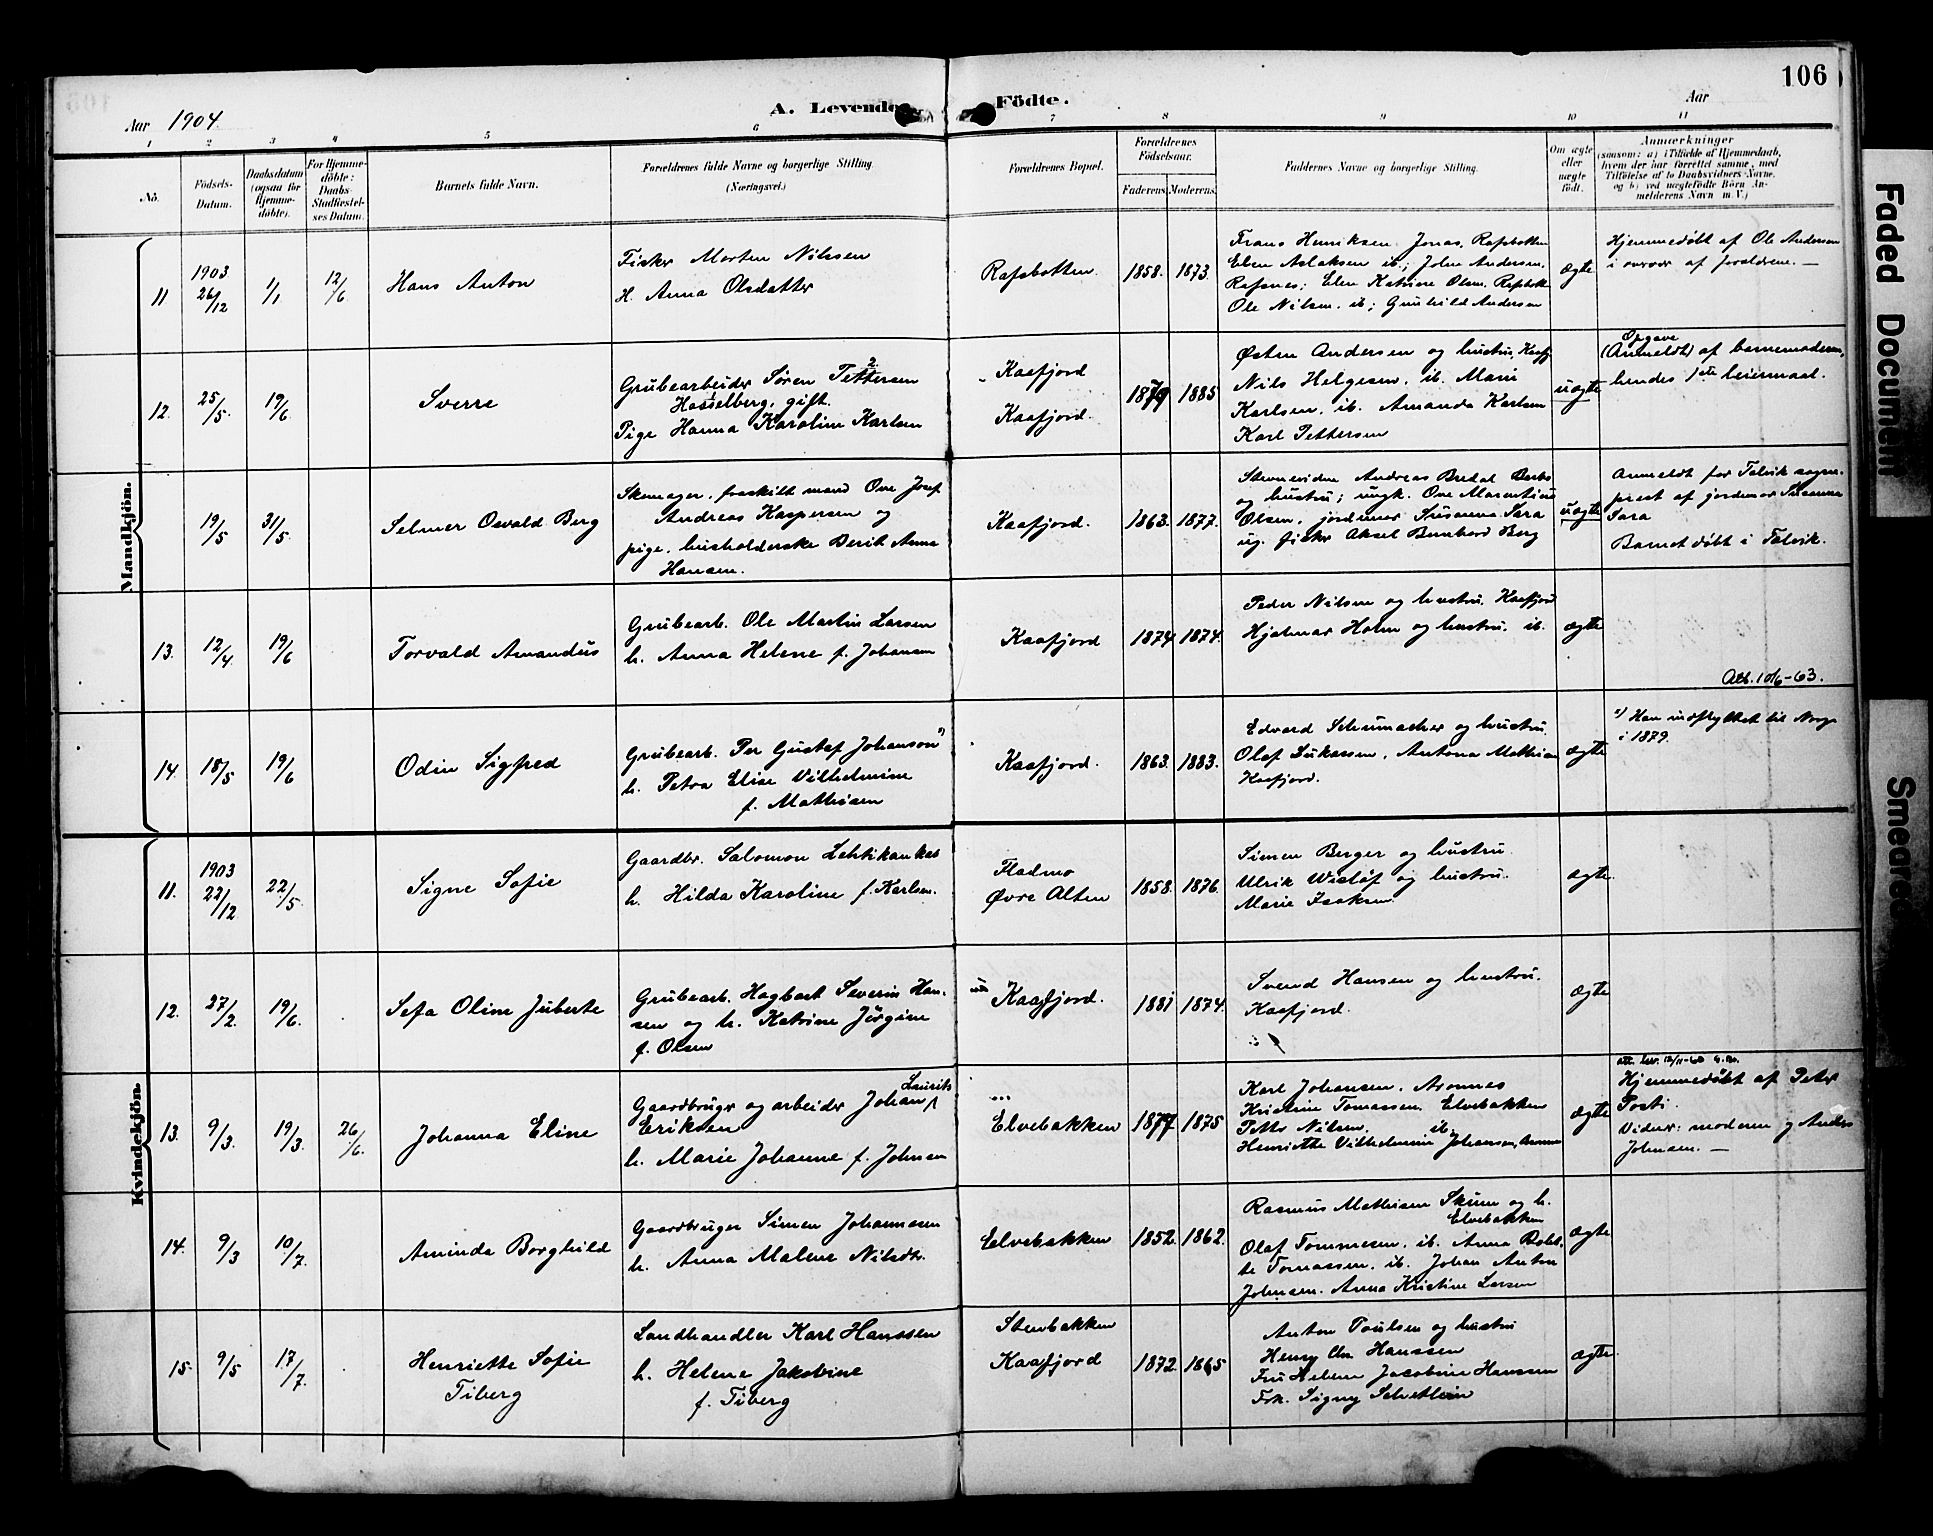 106
Aar 1904.
A. Levende Födte.
Aar
1 2 3 4 5 6 7 8 9 10 11
No.
Födsels-Datum.
Daabsdatum (ogsaa for Hjemme-døbte).
For Hjemme-døbte: Daabs-Stadfæstel-ses Datum.
Barnets fulde Navn.
Forældrenes fulde Navne og borgerlige Stilling. (Næringsvei.)
Forældrenes Bopæl.
Forældrenes Födselsaar.
Faderens. Moderens.
Faddernes Navne og borgerlige Stilling.
Om ægte eller uægte født.
Anmærkninger
(saasom: a) i Tilfælde af Hjemmedaab, hvem der har forrettet samme, med Tilføielse af to Daabsvidners Navne, og b) ved uægtefødte Börn An-melderens Navn m. V.)
Mandkjön.
11 1903 26/12 1/1 12/6 Hans Anton
Fisker Morten Nilssen
H. Anna Olsdatter
Rafsbotten. 1858. 1873.
Frans Henriksen. Jonas, Rafsbotten
Elen Aslaksen ib; John Andersen,
Rafsnes; Elen Katrine Olsen, Rafsbotten
Ole Nilsen. ib; Gunhild Andersen
ægte
Hjemmedøbt af Ole Andersen
i overvær af forældrene. —
12. 25/5 19/6 Sverre
Grubearbeider Søren Pettersen
Hasselberg, gift.
Pige Hanna Karoline Karlsen
Kaafjord
Kaafjord.
1879 1885
Østen Andersen og hustru, Kaafj.
Nils Helgesen, ib. Marie
Karlsen, ib. Amanda Karlsen
Karl Pettersen
uægte
Opgave
(Anmeldt) af barnemoderen,
hendes 1ste leiermaal.
19/5 31/5. Selmer Osvald Berg
Skomager, fraskilt mand Ove Josef
Andreas Kaspersen og
pige, husholderske Berit Anna
Hansen.
Kaafjord. 1863. 1877.
og hustru; ungk. Ove Marentius
Olsen, jordmor Susanna Sara
ug. fisker Aksel Bernhard Berg
uægte
Anmeldt for Talvik sogne-
prest af jordmor Susanna
Sara
Barnet døbt i Talvik.
13. 12/4 19/6 Torvald Amandus
Grubearb. Ole Martin Larsen
h. Anna Helene f. Johansen
Kaafjord 1874 1874.
Peder Nilsen og hustru, Kaafjord
Hjalmar Holm og hustru. ib.
ægte
Att. 10/6-63.
14. 18/5 19/6 Odin Sigfred
Grubearb. Per Gustaf Johanson
h. Petra Elise Vilhelmine
f. Mathisen
Kaafjord. 1863. 1883.
Edvard Schumacher og hustru
Olaf Lukassen, Antona Mathisen
Kaafjord.
ægte
Han indflyttet til Norge
i 1879.
Kvindekjön.
11. 1903 22/12 22/5. Signe Sofie
Gaardbr. Salomon Lehtikankas
h. Hilda Karoline f. Karlsen.
Fladmo
Øvre Alten
1858. 1876
Simen Berger og hustru.
Ulrik Wisløf og hustru.
Marie Isaksen
ægte.
12. 27/2. 19/6. Sefa Oline Juberte
Grubearb. Hagbart Severin Han-
sen og h. Katrine Jørgine
f. Olsen
Kaafjord. 1881 1874.
Svend Hansen og hustru.
Kaafjord.
ægte
13. 9/3. 19/3. 26/6. Johanna Eline
Laurits
Gaardbruger og arbeider Johan
Eriksen
h. Marie Johanne f. Johnsen
Elvebakken 1877 1875
Karl Johansen. Aronnes
Kristine Tomassen, Elvebakken
Petter Nilsen. ib.
Henriette Vilhelmine Johansen,
ægte
Hjemmedøbt af Peter
Posti.
Vidner: moderen og Anders
Johnsen. —
14. 9/3 10/7. Aminda Borghild
Gaardbruger Simen Johannesen
h. Anna Malene Nilsdtr.
Elvebakken 1852 1862.
Rasmus Mathisen Skum og h.
Elvebakken
Olaf Tommesen. ib. Anna Bolet-
te Tomassen. ib. Johan Anton
Johnsen. Anna Kristine Larsen
ægte
15. 9/5 17/7. Henriette Sofie
Tiberg
Landhandler Karl Hanssen
h. Helene Jakobine
f. Tiberg
Stenbakken
Kaafjord
1872 1865
Anton Poulsen og hustru
Henry Chr Hanssen
Fru Helene Jacobine Hanssen
Frk. Signy Schetlein
ægte.
Faded Document
Smeared